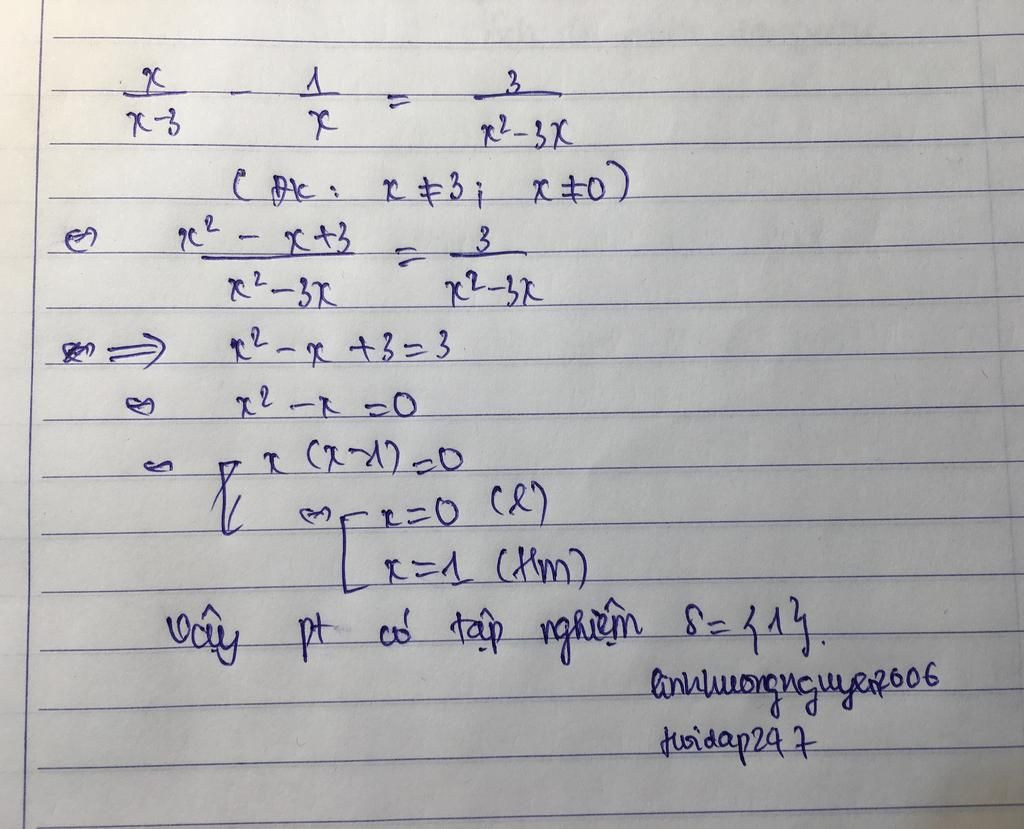 x/(x-3) - 1/x = 3/(x²-3x)
(Đk: x ≠ 3; x ≠ 0)
⇔ (x² - x+3)/(x²-3x) = 3/(x²-3x)
⇒ x² - x + 3 = 3
⇔ x² - x = 0
⇔ x (x-1) = 0
⇔ [ x = 0 (l)
x = 1 (tm)
Vậy pt có tập nghiệm S = {1}.
linhhuongnguyen2606
hoidap247